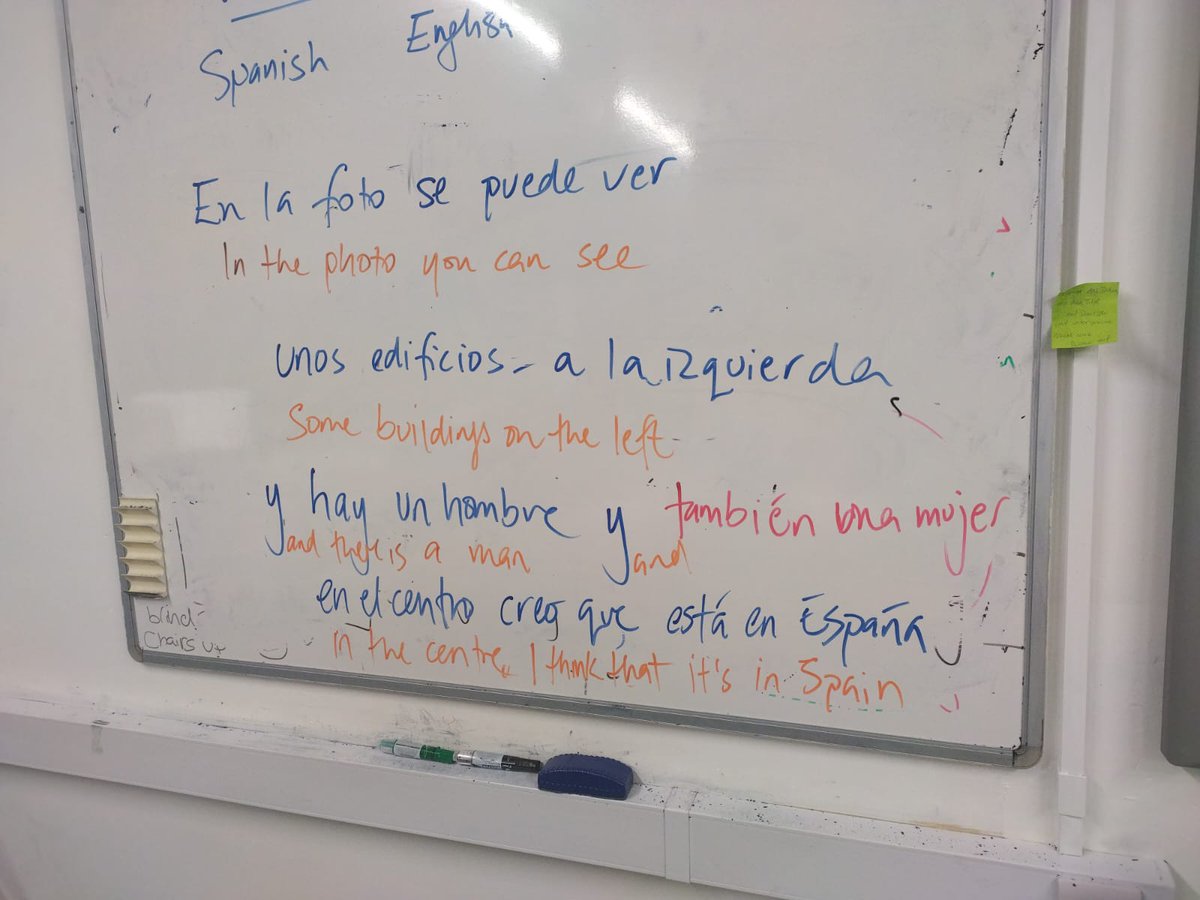 Spanish English
En la foto se puede ver
In the photo you can see
unos edificios - a la izquierda
Some buildings on the left
y hay un hombre y también una mujer
and there is a man and
en el centro creo que está en España
in the centre, I think that it's in Spain
blind
Chairs up